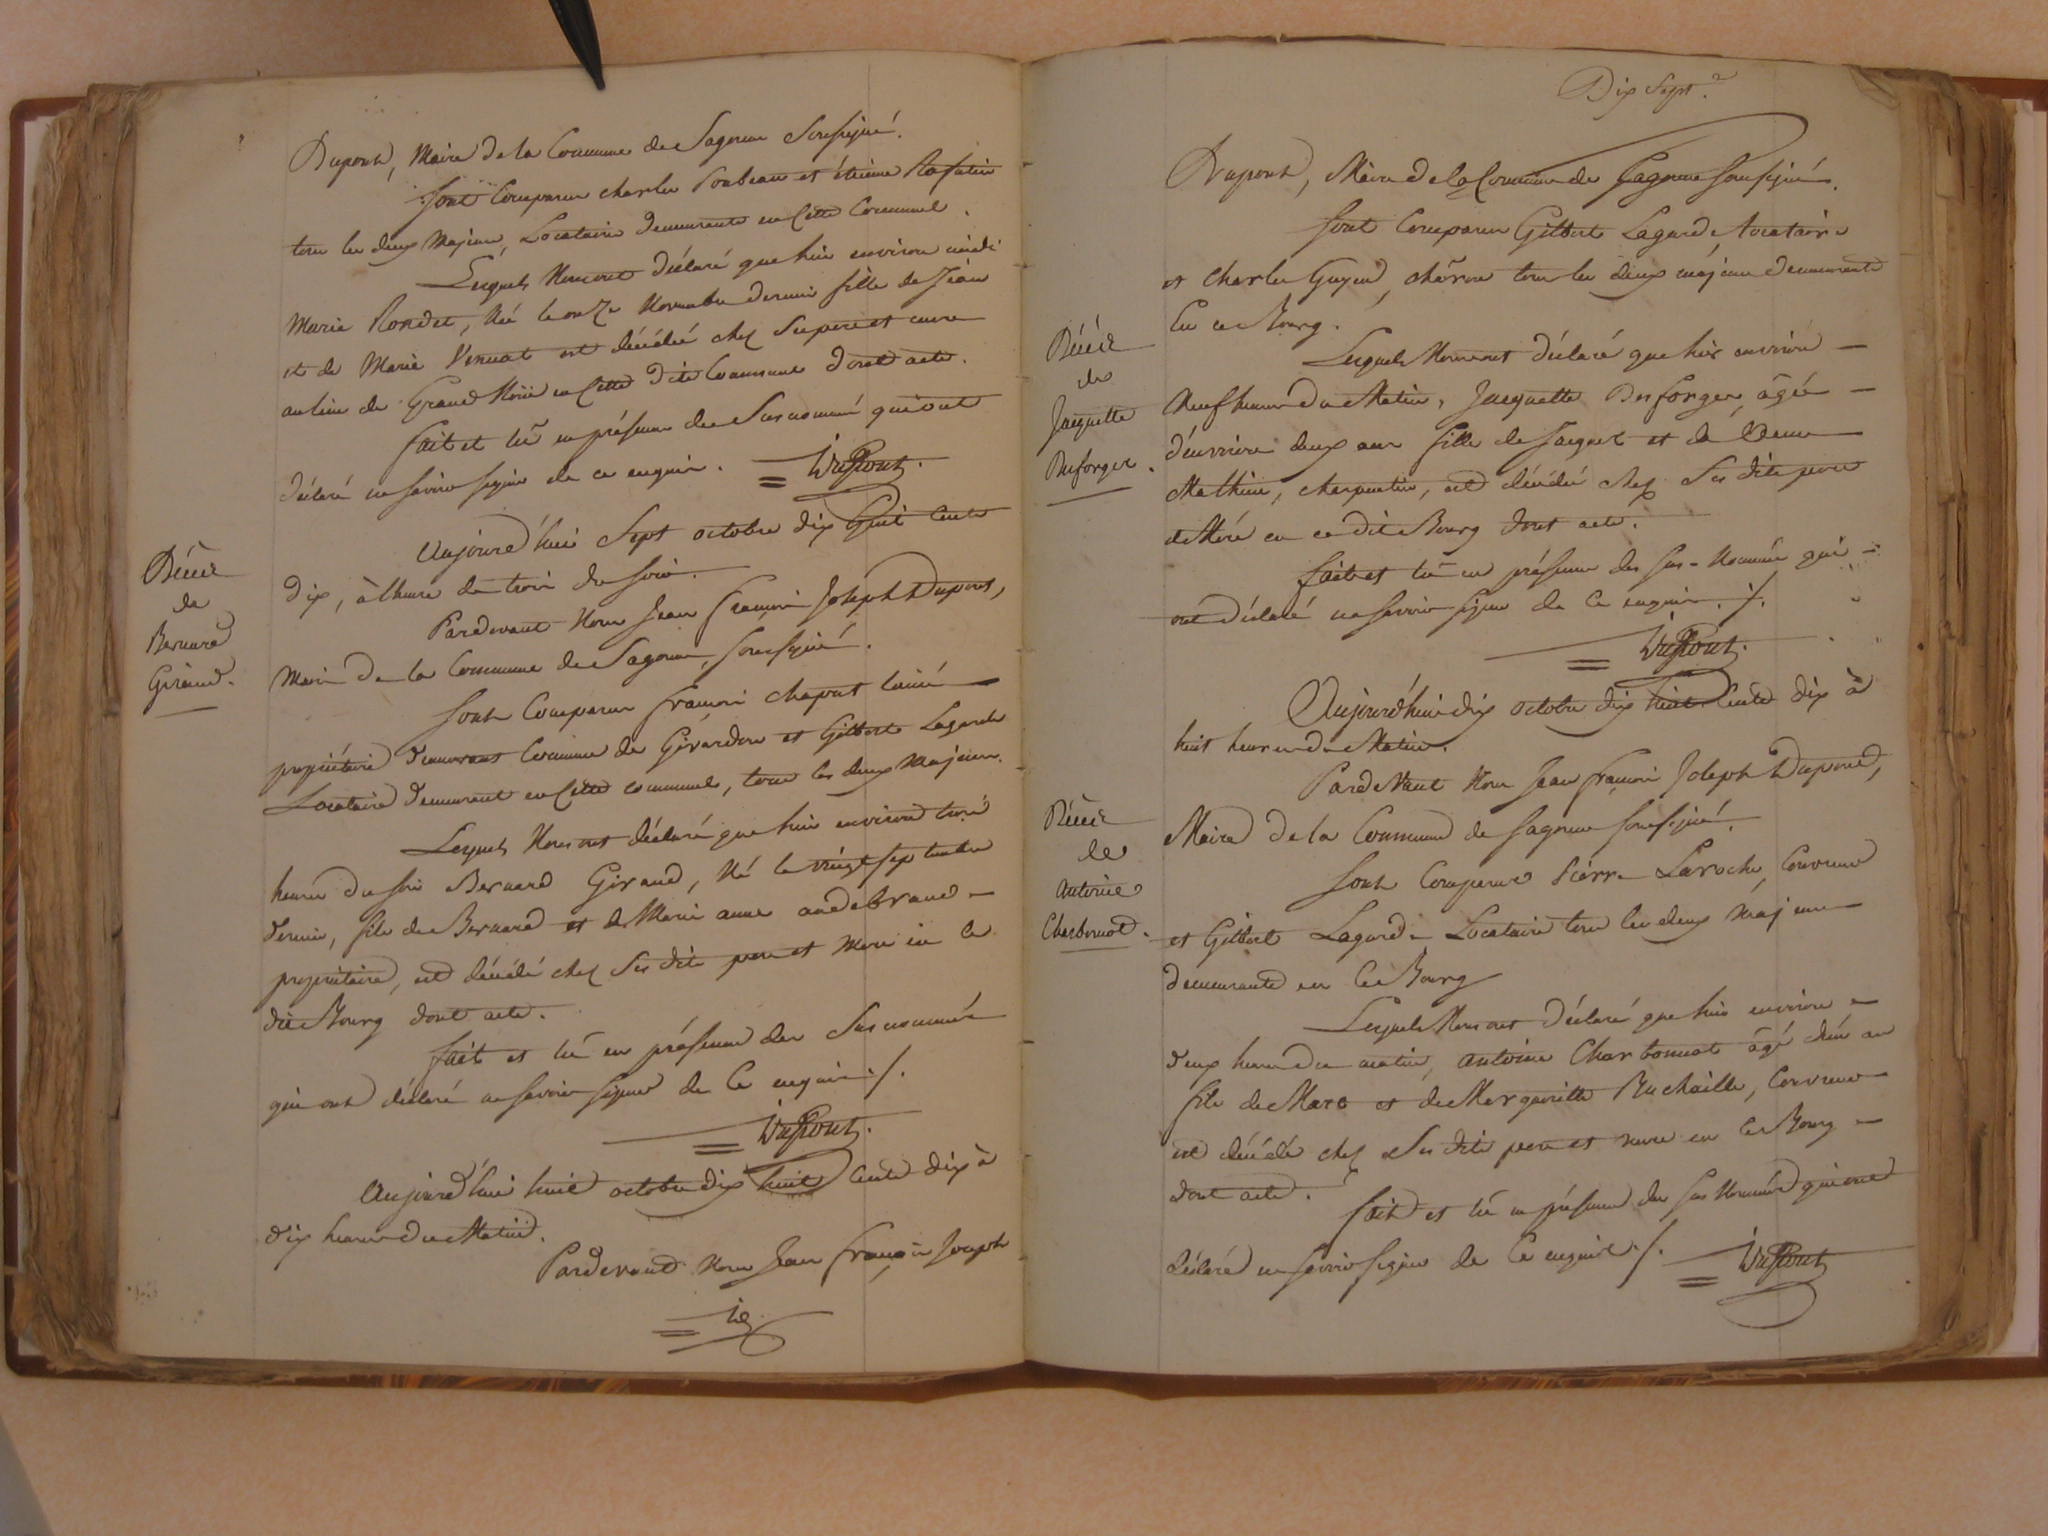 Dupont, Maire de la Commune de Sagonne Soussigné.
Sont Comparus Charles Poubeau et étienne
tous les deux Majeurs, Locataires demeurants en Cette Commune.
Lesquels Nous ont déclaré que hier environ midi
Marie Rondet, Né le onze Novembre dernier fille de Jean
et de Marie Venuat est décédée chez Ses pere et mere
au lieu de Grand en Cette dite Commune dont acte.
fait et lû en présence des Susnommés qui ont
déclaré ne savoir signer de ce enquis. Dupont.
Décès
de
Bernard
Giraud.
Aujourd'hui Sept octobre dix huit Cents
dix, à l'heure de trois du soir.
Pardevant Nous Jean François Joseph Dupont,
Maire de la Commune de Sagonne, soussigné.
Sont Comparus François Chaput
propriétaire demeurant Commune de Givardon et Gilbert Lagarde
Locataire demeurant en Cette commune, tous les deux Majeurs.
Lesquels Nous ont déclaré que hier environ trois
heures du soir Bernard Giraud, Né le vingt septembre
dernier, fils de Bernard et de Marie anne audebrand
propriétaire, est décédé chez Ses dits pere et Mere en ce
dit Bourg dont acte.
fait et lû en présence des Susnommés
qui ont déclaré ne savoir signer de Ce enquis ./.
Dupont.
Aujourd'hui huit octobre dix huit Cents dix à
dix heures du Matin.
Pardevant Nous Jean François Joseph
Dix Sept.
Dupont, Maire de la Commune de Sagonne soussigné.
Sont Comparus Gilbert Lagarde, Locataire
et Charles Guyon, chãron tous les deux majeurs demeurants
En ce Bourg.
Décès
de
Jacquette
Desforges.
Lesquels Nous ont déclaré que hier environ
Neuf heures du Matin, Jacquette Desforges, âgée
d'environ deux ans fille de Jacques et de
Mathieu, charpentier, est décédée chez Ses dits pere
et Mere en ce dit Bourg dont acte.
fait et lû en présence des sus-Nommés qui
ont déclaré ne savoir signer de Ce enquis ./.
Dupont.
Aujourd'hui dix octobre dix huit Cents dix à
huit heures du Matin.
Pardevant Nous Jean François Joseph Dupont,
Maire de la Commune de Sagonne soussigné.
Décès
de
Antoine
Charbonnat.
Sont Comparus Pierre Laroche, Couvreur
et Gilbert Lagarde Locataire tous les deux majeurs
demeurants en Ce Bourg
Lesquels Nous ont déclaré que hier environ
deux heures du matin, antoine Charbonnat âgé d'un an
fils de Marc et de Marguerite Ruchaille, Couvreur
est décédé chez Ses dits pere et mere en Ce Bourg
dont acte.
fait et lû en présence des sus Nommés qui ont
déclaré ne savoir signer de Ce enquis ./. Dupont